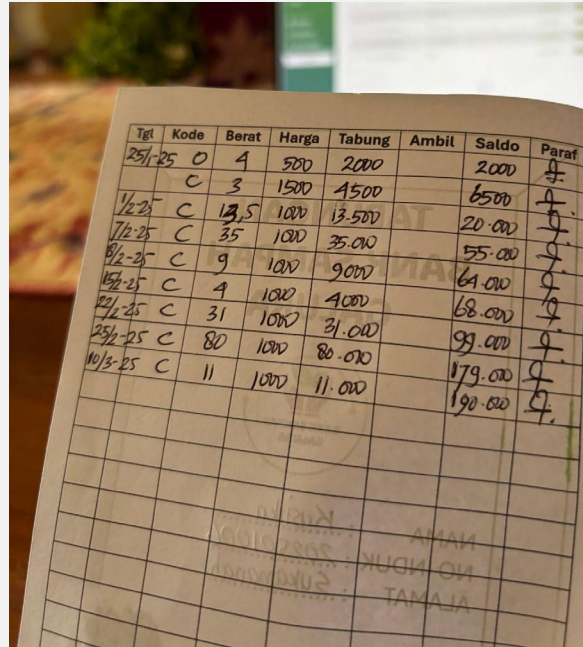 Tgl Kode Berat Harga Tabung Ambil Saldo Paraf
25/1-25 O 4 500 2000 2000
C 3 1500 4500 6500
1/2-25 C 13,5 1000 13.500 20.000
7/2-25 C 35 1000 35.000 55.000
8/2-25 C 9 1000 9000 64.000
15/2-25 C 4 1000 4000 68.000
22/2-25 C 31 1000 31.000 99.000
25/2-25 C 80 1000 80.000 179.000
10/3-25 C 11 1000 11.000 190.000
TABUNGAN
BANK SAMPAH
NAMA :
NO INDUK :
ALAMAT : Sukamanah